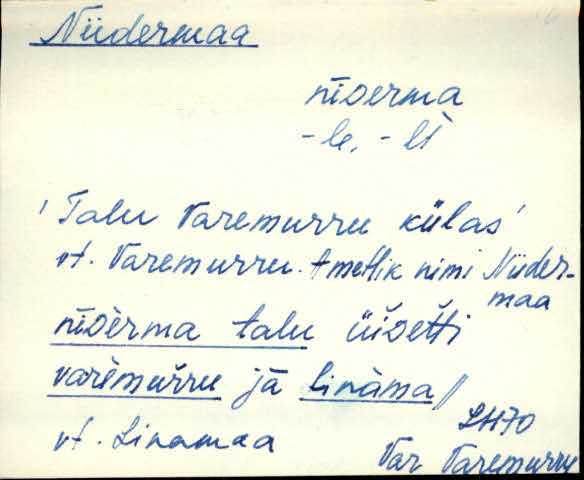 Niidermaa
nīderma
-le, -lt
'Talu Varemurru külas'
vt. Varemurru. Ametlik nimi Niider-
maa
nīdèrma talu üǖdetti
varèmuřru jä linàma //
vt. Linamaa
LH70
Var Varemurru